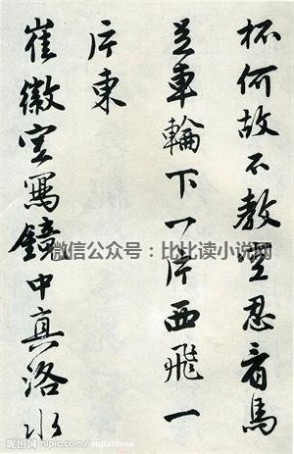 杯何故不教忍看馬
足車輪下一片西飛一
片東
崔徽空寫鏡中真洛水
微信公众号：比比读小说网
昵图网 nipic.com/sujianhua